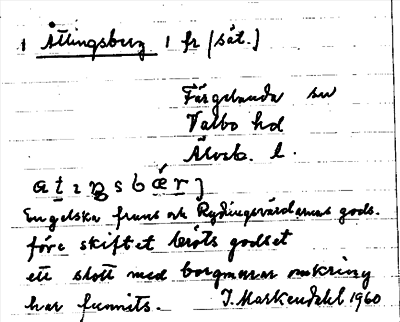 1 Ättingsberg 1 fr (sät.)
Färgelanda sn
Valbo hd
Älvsb. l.
Engelska fruns och Rydingsvärdarnas gods.
före skiftet bröts godset
ett slott med borgmurar omkring
har funnits. J. Markendahl 1960